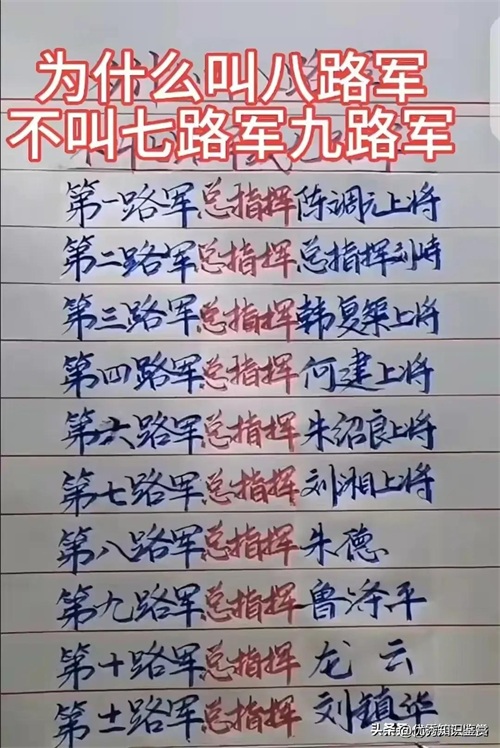 为什么叫八路军
不叫七路军九路军
第一路军总指挥陈调元上将
第二路军总指挥总指挥刘峙
第三路军总指挥韩复榘上将
第四路军总指挥何建上将
第六路军总指挥朱绍良上将
第七路军总指挥刘湘上将
第八路军总指挥朱德
第九路军总指挥鲁泽平
第十路军总指挥龙云
第十一路军总指挥刘镇华
头条 @优秀知识鉴赏